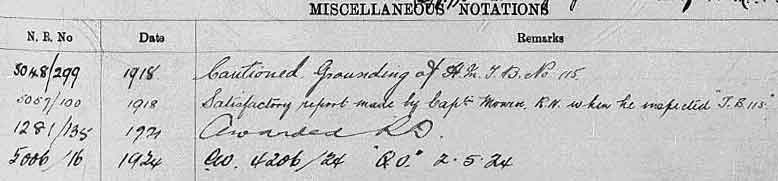 MISCELLANEOUS NOTATIONS
N. R. No Date Remarks
5048/299 1918. Cautioned. Grounding of H.M.T.B. No 115.
5057/100 1918 Satisfactory report made by Capt. Monroe. R.N. when he inspected "T.B. 115."
1281/135 1921 Awarded R.D.
5006/16 1924 C.W. 4206/24 "Q.O." 2.5.24